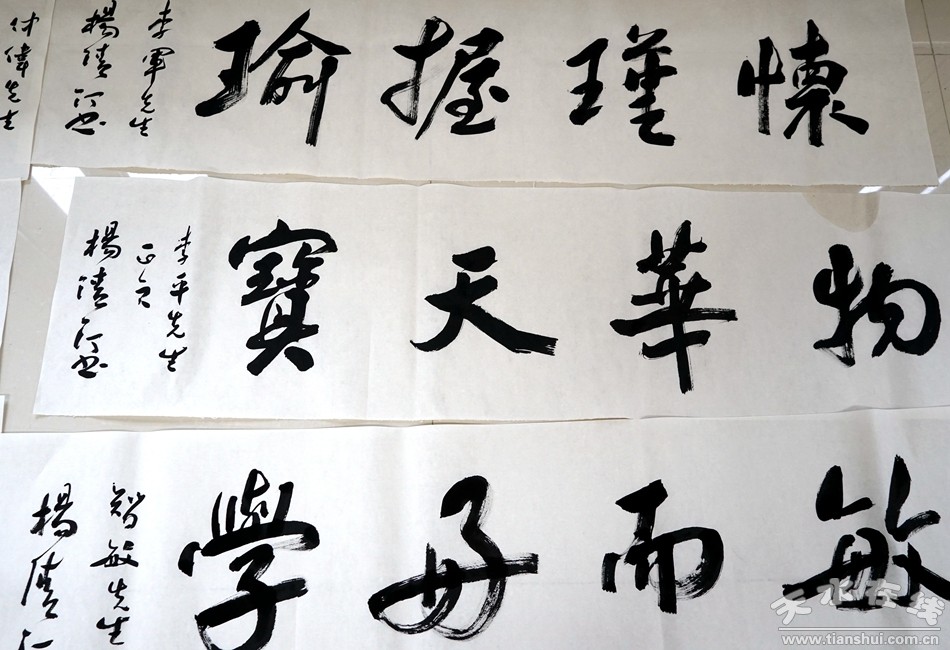 懷瑾握瑜
李軍先生
楊清汀書
物華天寶
李平先生
正之
楊清汀書
敏而好學
智敏先生
楊清汀
天水在线
www.tianshui.com.cn